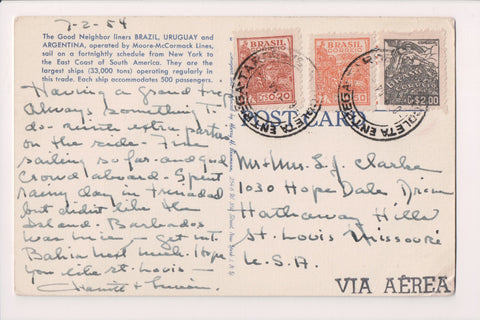 7-2-54
The Good Neighbor liners BRAZIL, URUGUAY and
ARGENTINA, operated by Moore-McCormack Lines,
sail on a fortnightly schedule from New York to
the East Coast of South America. They are the
largest ships (33,000 tons) operating regularly in
this trade. Each ship accommodates 500 passengers.
Having a grand trip
Always something to
do - extra parties
on the side - Fine
sailing so far - and good
crowd aboard - Spent
rainy day in Trinidad
but didn't like the
Island. Barbados
was nice - get into
Bahia next week. Hope
you like St. Louis -
BRASIL CORREIO
BRASIL CORREIO
BRASIL CORREIO
Cr$ 0,20
Cr$ 2,00
COLETA ENTREGA
COLETA ENTREGA
POST CARD
Mr + Mrs. L. J. Clarke
1030 Hope Dale Drive
Hathaway Hills
St. Louis Missouri
U.S.A.
VIA AÉREA